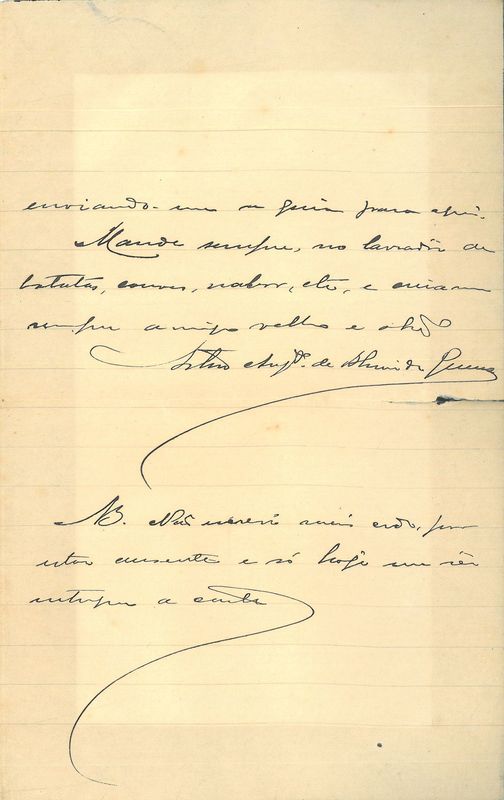 enviando-me a guia para aqui.
Mande sempre, no lavrador de
batatas, couves, nabos, etc, e
sempre amigo velho e obrg.do
de Almeida
NB. Não escrevi mais cedo, por
estar ausente e só hoje me ser
entregue a carta